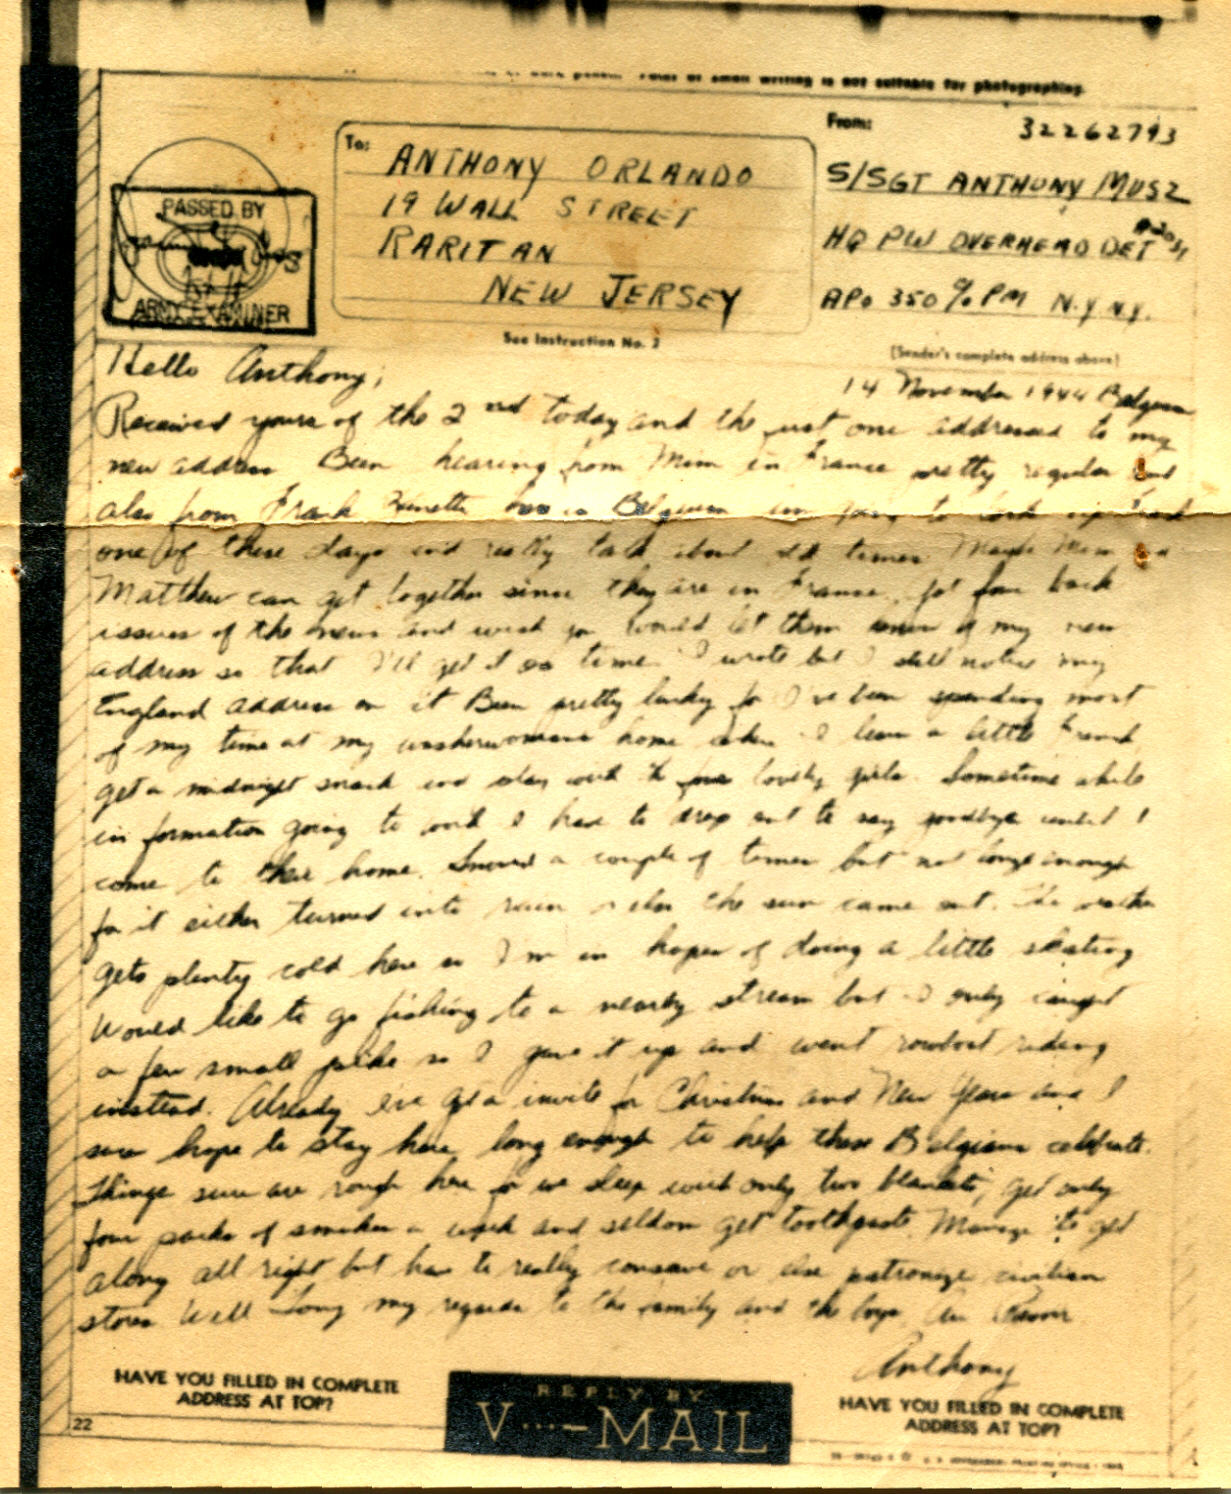 is not suitable for photographing.
PASSED BY
ARMY EXAMINER
To:
ANTHONY ORLANDO
19 WALL STREET
RARITAN
NEW JERSEY
See Instruction No. 2
From:
32262793
S/SGT ANTHONY MUSZ
HQ PW OVERHEAD DET
APO 350 % PM N.Y. N.Y.
(Sender's complete address above)
14 November 1944 Belgium
Hello Anthony,
Received yours of the 2nd today and the first one addressed to my
new address Been hearing from Mim in France pretty regular and
also from Frank in Belgium im going to look up Frank
one of these days and really talk about old times. Maybe Mim and
Matthew can get together since they are in France. Got four back
issues of the news and wish you would let them know of my new
address so that I'll get it on time. I wrote but I still notice my
England address on it Been pretty lucky for I've been spending most
of my time at my washerwomans home where I learn a little French
get a midnight snack and play with the four lovely girls. Sometime while
in formation going to work I have to drop out to say goodbye until I
come to their home. Snowed a couple of times but not long enough
for it either turned into rain or else the sun came out. The weather
gets plenty cold here so I'm in hopes of doing a little skating
Would like to go fishing to a nearby stream but I only caught
a few small pike so I gave it up and went rowboat riding
instead. Already I've got a invite for Christmas and New Years and I
sure hope to stay here long enough to help these Belgians celebrate.
Things sure are rough here for we sleep with only two blankets, get only
four packs of smokes a week and seldom get toothpaste. Manage to get
along all right but have to really conserve or else patronize civilian
stores Well Tony my regards to the family and the boys. Au Revoir
Anthony
HAVE YOU FILLED IN COMPLETE
ADDRESS AT TOP?
REPLY BY
V···—MAIL
HAVE YOU FILLED IN COMPLETE
ADDRESS AT TOP?
22